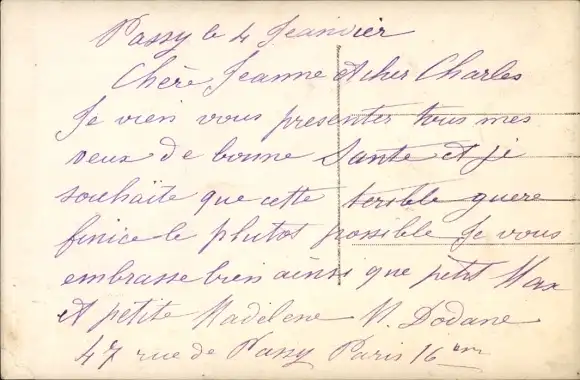 Passy le 4 Jeanvier
Chère Jeanne et cher Charles
Je vien vous presenter tous mes
veux de bonne Sante et je
souhaite que cette terible guere
finice le plutos possible Je vous
embrasse bien ainsi que petit Max
et petite Madelene M. Dodane
47 rue de Passy Paris 16 em